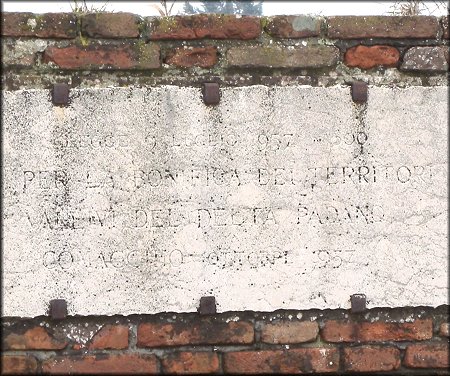 LEGGE 9 LUGLIO 1957 N 600
PER LA BONIFICA DEI TERRITORI
VALLIVI DEL DELTA PADANO
COMACCHIO OTTOBRE 1957